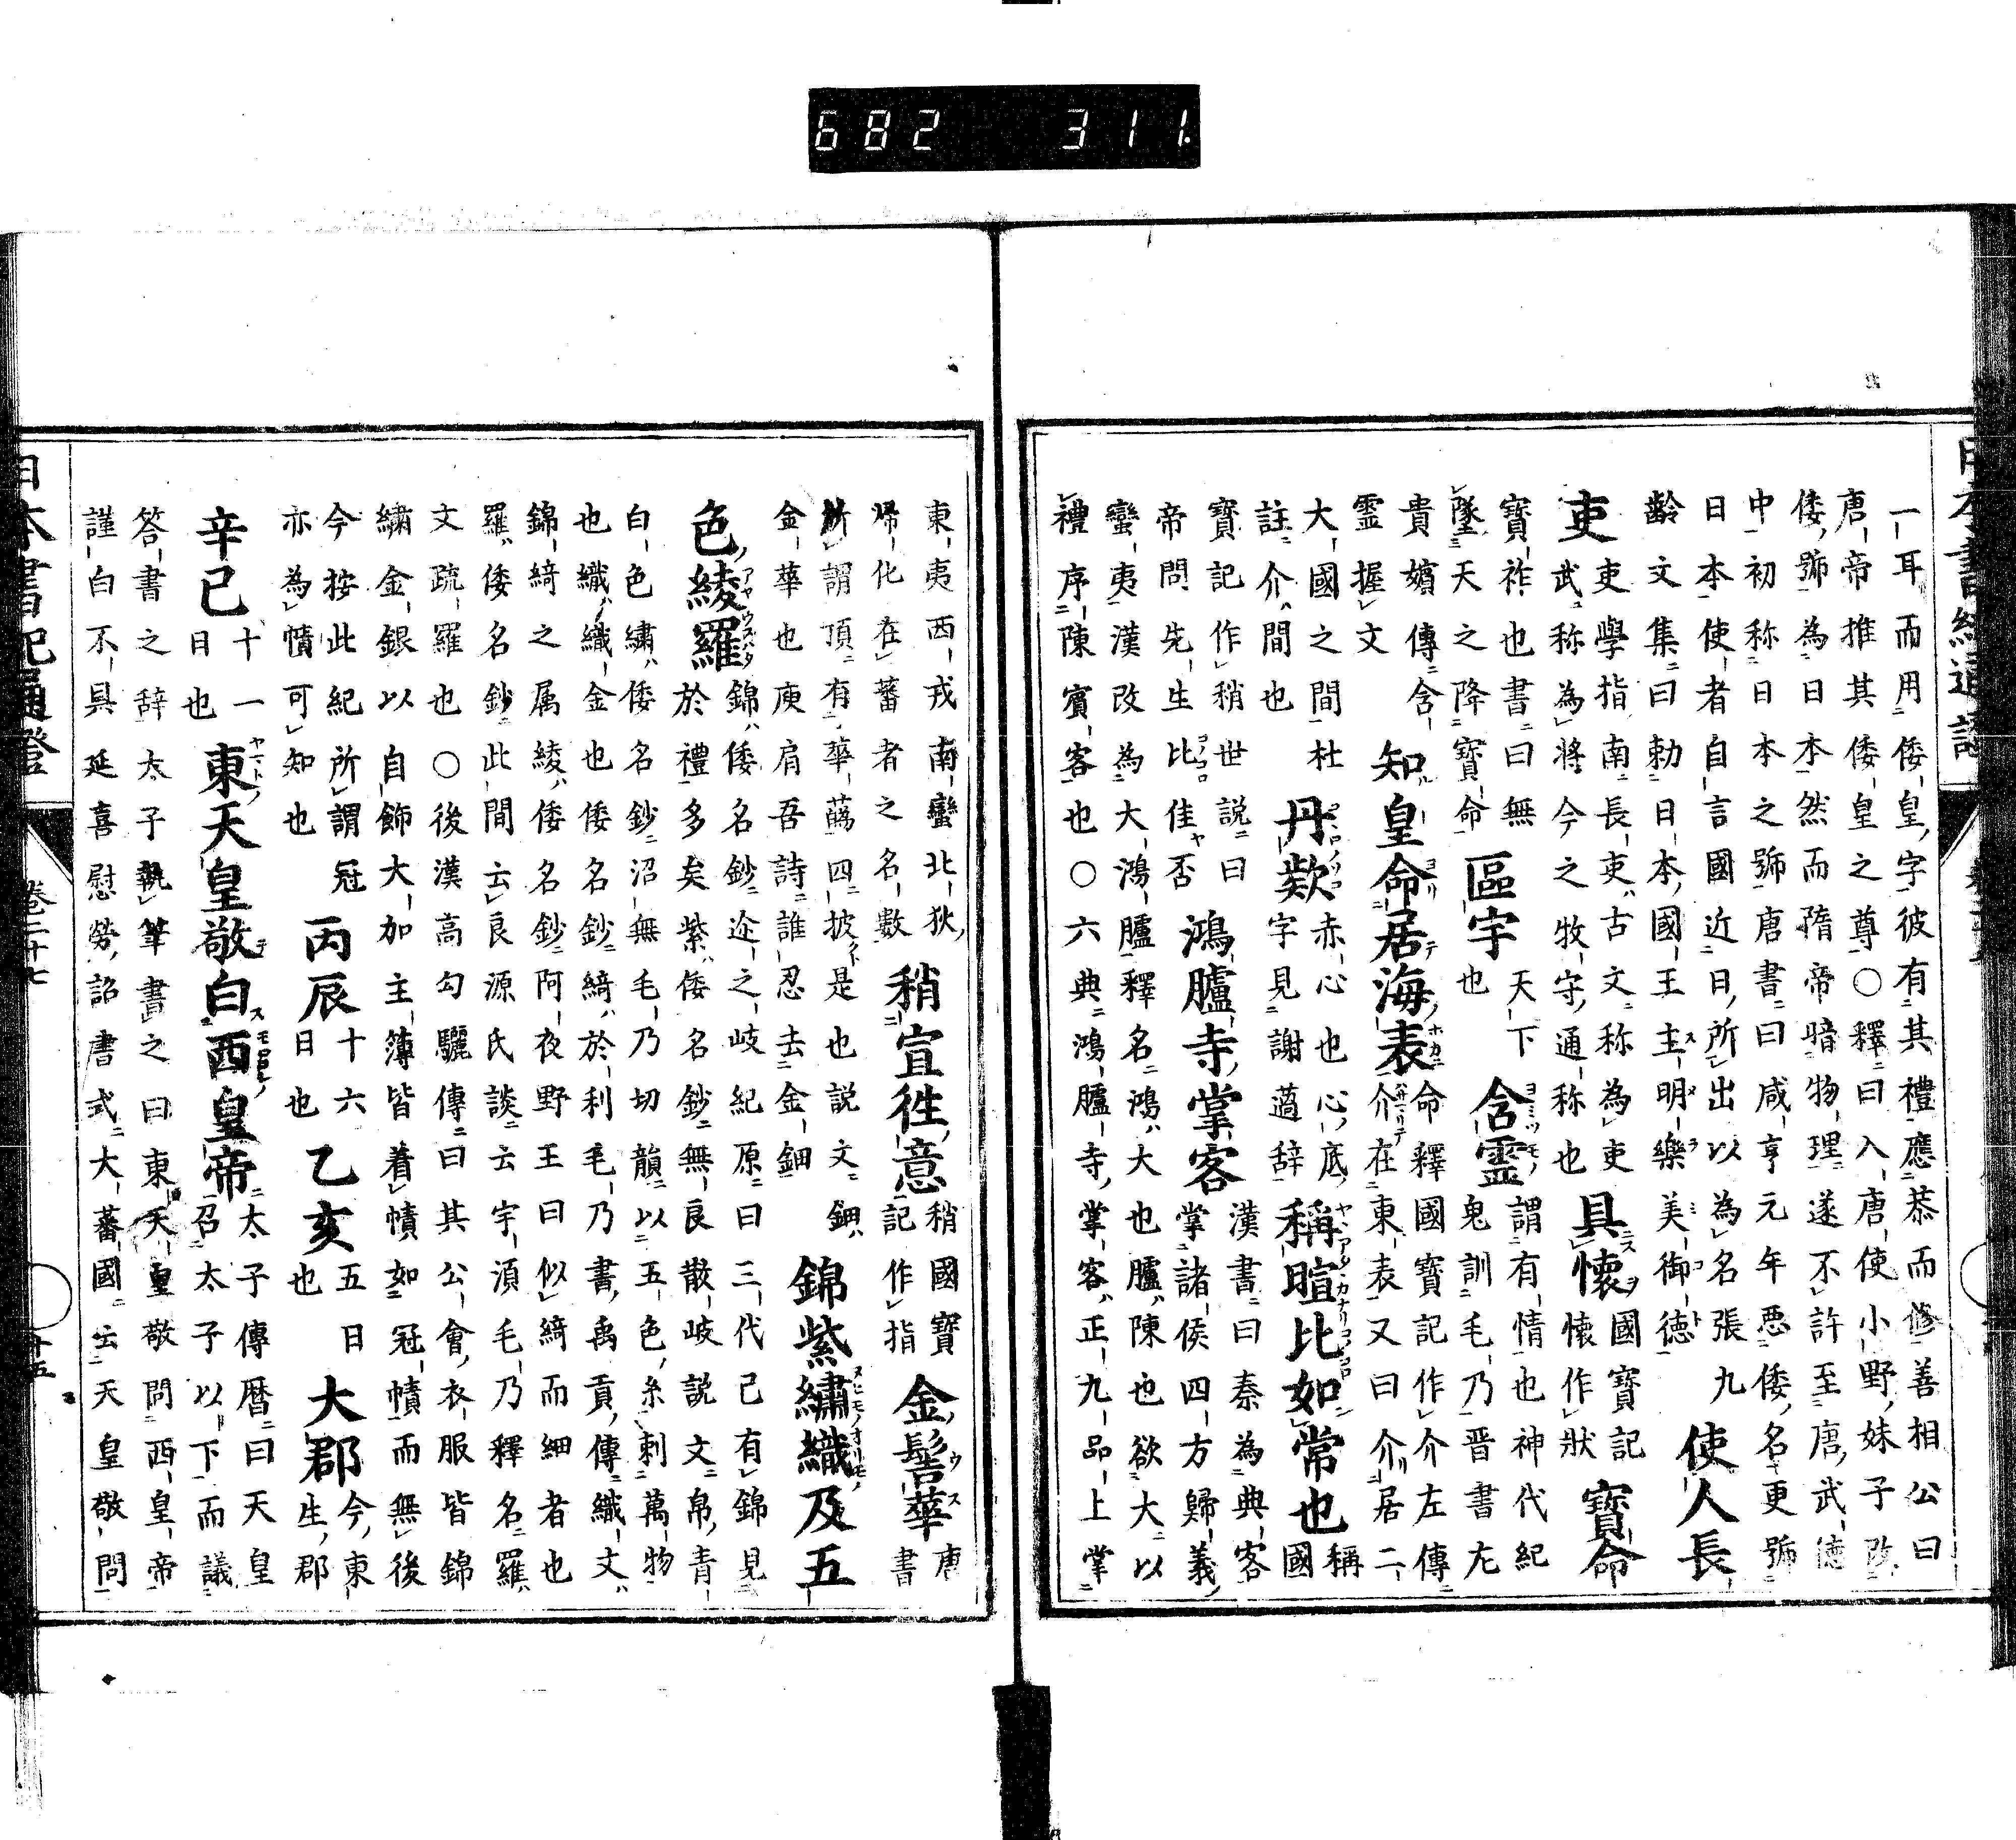 682 311
一耳而用倭皇字彼有其禮應恭而修善相公曰
唐帝推其倭皇之尊〇釋曰入唐使小野妹子改
倭號為日本然而隋帝暗物理遂不許至唐武徳
中初称日本之號唐書曰咸亨元年悪倭名更號
日本使者自言國近日所出以為名張九
齡文集曰勅日本國王主明樂美御徳
使人長
吏
吏學指南長吏古文称為吏
武称為将今之牧守通称也
具懐
國寶記
懐作状
寶命
寶祚也書曰無
墜天之降寶命
區宇
天下
也
含霊
謂有情也神代紀
鬼訓毛乃晋書左
貴嬪傳含
霊握文
知皇命居海表
命釋國寶記作介左傳
介在東表又曰介居二
大國之間杜
註介間也
丹款
赤心也心底
字見謝薖辞
稱暄比如常也
稱
國
寶記作稍世説曰
帝問先生比佳否
鴻臚寺掌客
漢書曰秦為典客
掌諸侯四方歸義
蠻夷漢改為大鴻臚釋名鴻大也臚陳也欲大以
禮序陳賓客也〇六典鴻臚寺掌客正九品上掌
東夷西戎南蠻北狄
帰化在蕃者之名數
稍宣徃意
稍國寶
記作指
金髻華
唐
書
所謂頂有華蘤四披是也説文鈿
金華也庾肩吾詩誰忍去金鈿
錦紫繡織及五
色綾羅
錦倭名鈔迮之岐紀原曰三代已有錦見
於禮多矣紫倭名鈔無良散岐説文帛青
白色繡倭名鈔沼無毛乃切韻以五色糸刺萬物
也織織金也倭名鈔綺於利毛乃書禹貢傳織文
錦綺之属綾倭名鈔阿夜野王曰似綺而細者也
羅倭名鈔此間云良源氏談云宇湏毛乃釋名羅
文疏羅也〇後漢高勾驪傳曰其公會衣服皆錦
繡金銀以自飾大加主簿皆着幘如冠幘而無後
今按此紀所謂冠
亦為幘可知也
丙辰
十六
日也
乙亥
五日
也
大郡
今東
生郡
辛巳
十一
日也
東天皇敬白西皇帝
太子傳暦曰天皇
召太子以下而議
答書之辞太子執筆書之曰東天皇敬問西皇帝
謹白不具延喜慰勞詔書式大蕃國云天皇敬問
日本書紀通證
卷二十七
十五